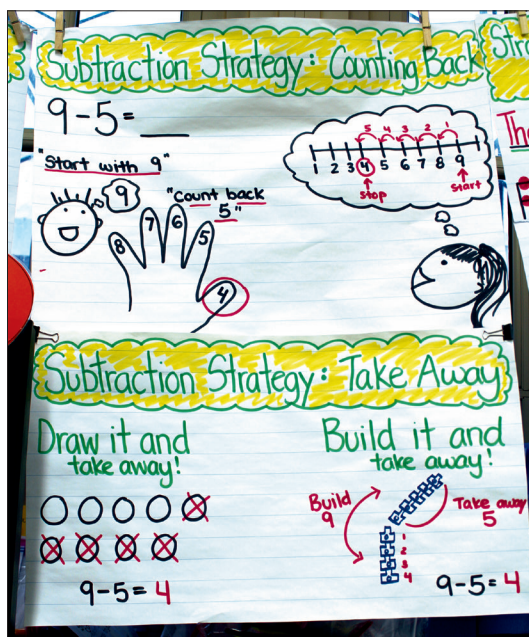 Subtraction Strategy: Counting Back
Stra
9-5=___
"Start with 9"
9
"Count back
5"
8 7 6 5 4
5 4 3 2 1
1 2 3 4 5 6 7 8 9
stop
start
Subtraction Strategy: Take Away
Draw it and
take away!
9-5=4
Build it and
take away!
Build
9
Take away
5
1
2
3
4
9-5=4